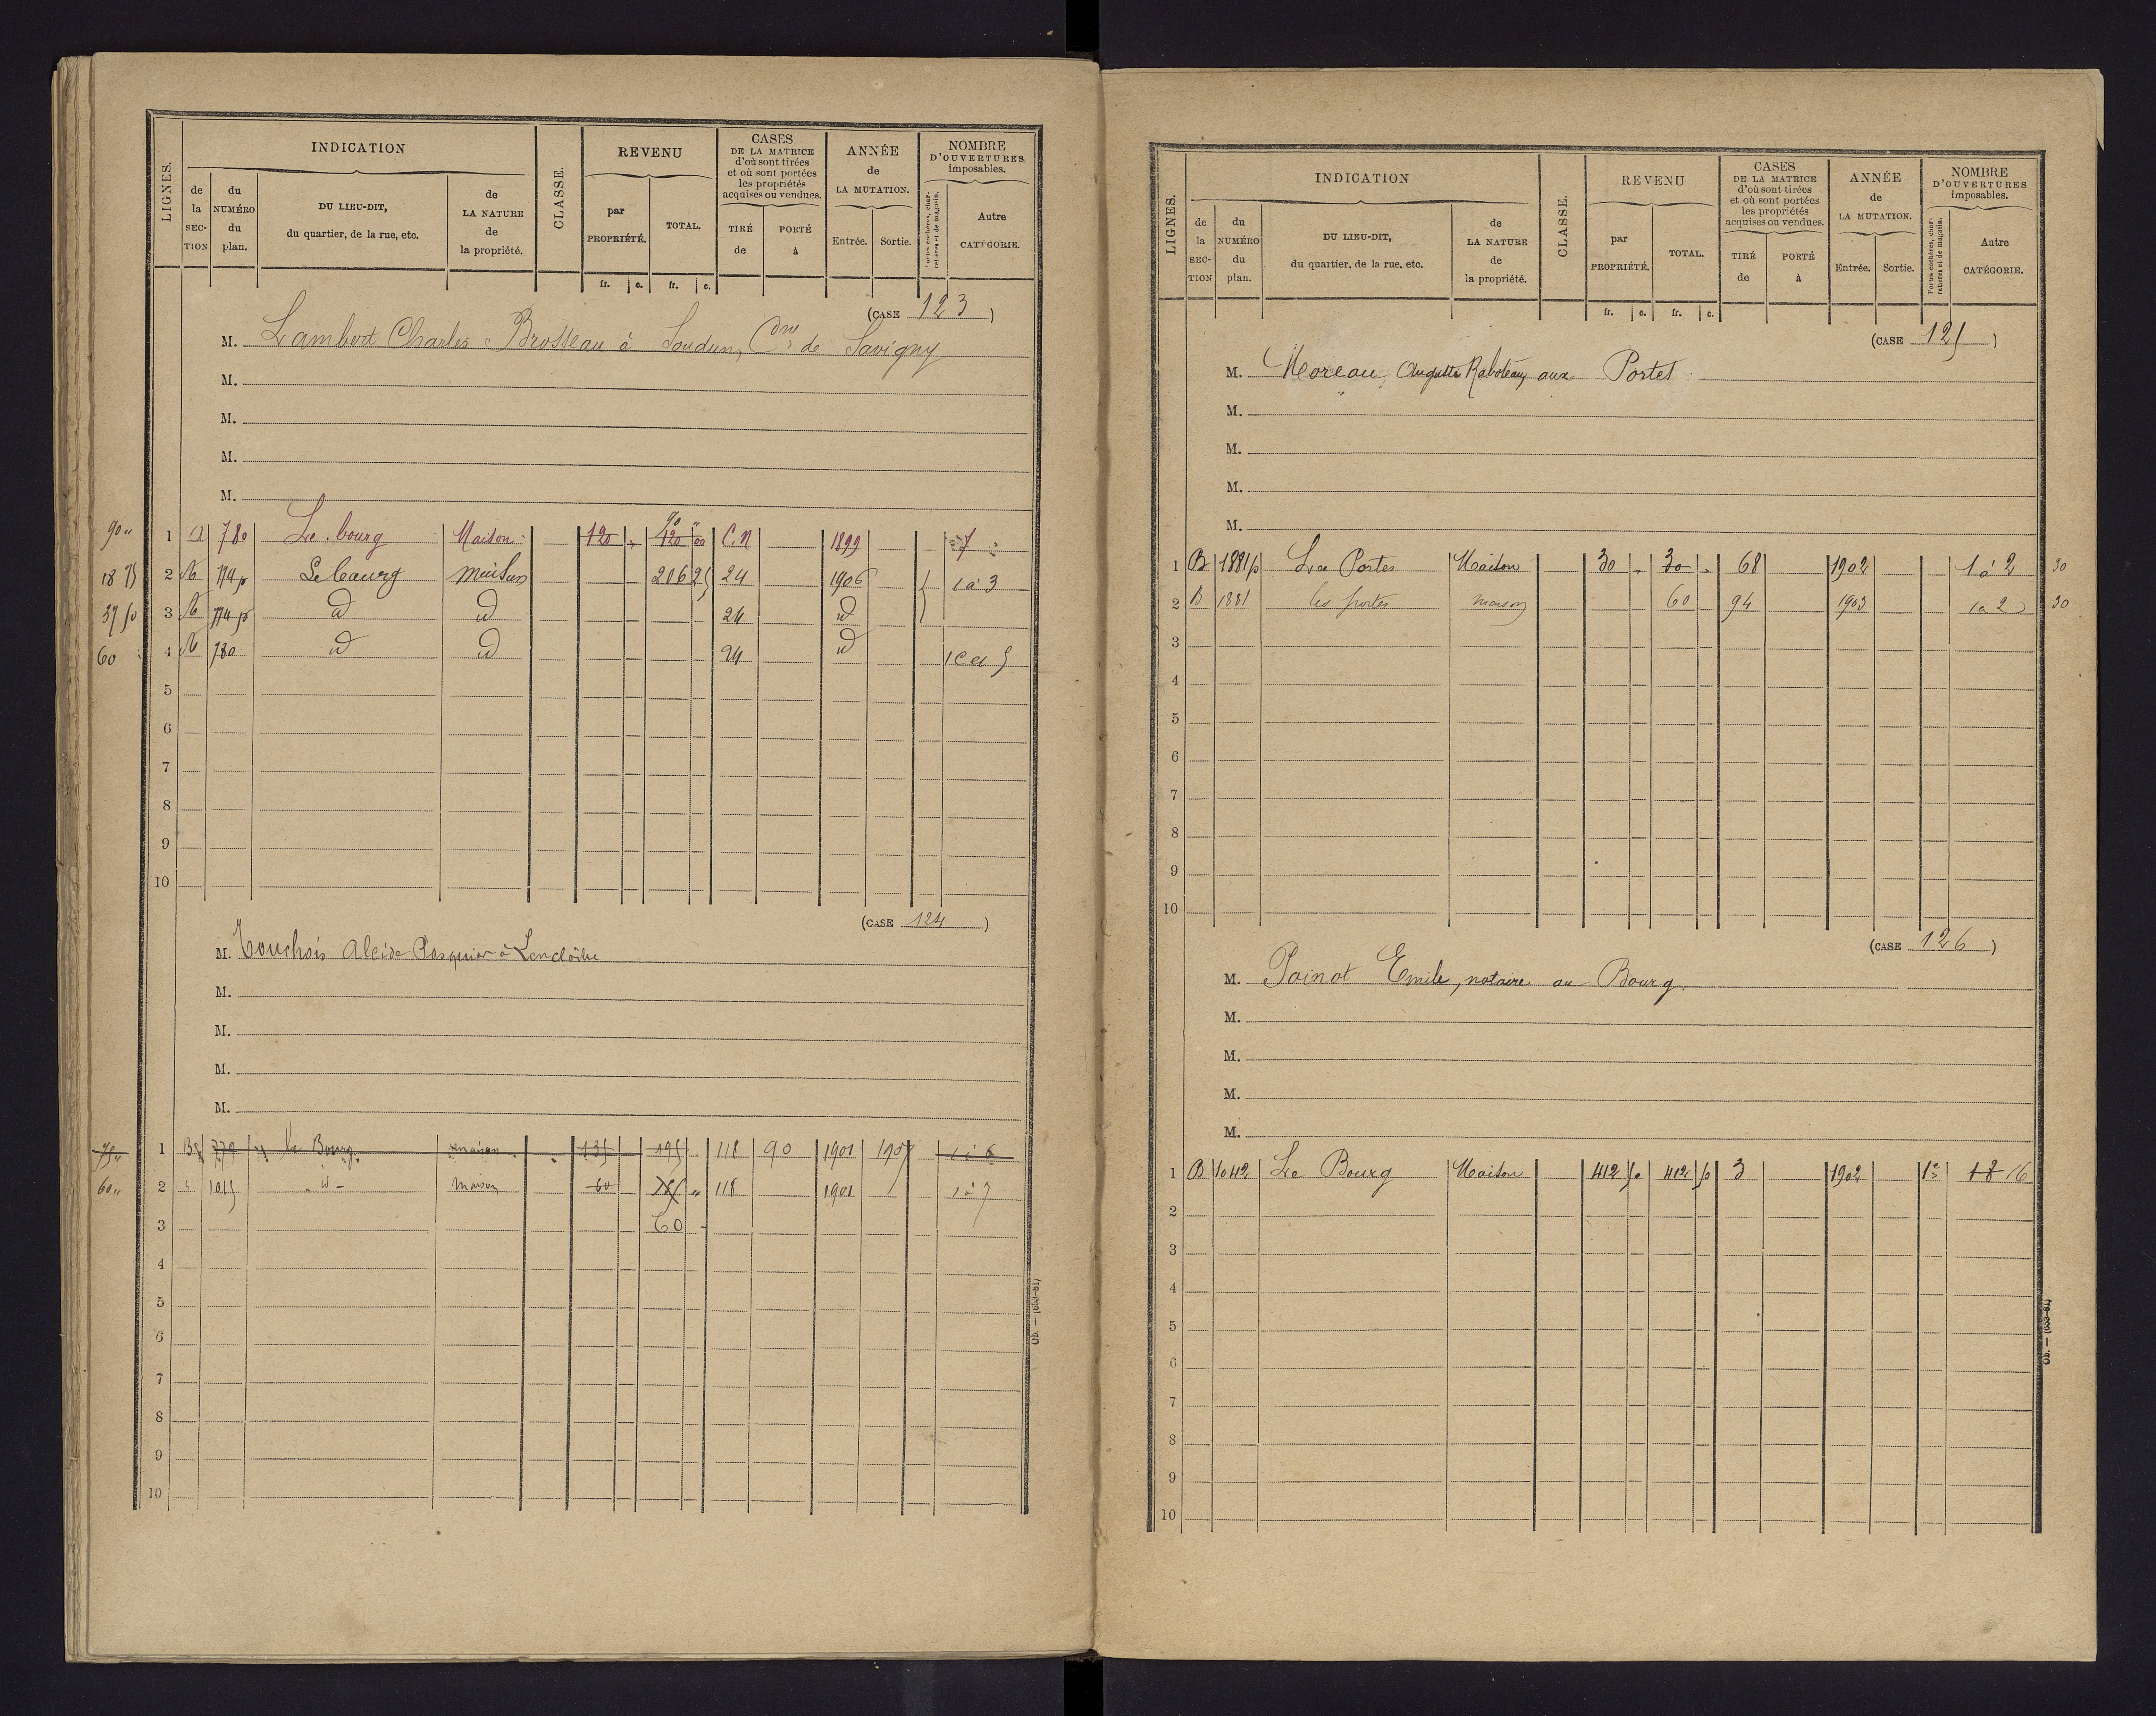 LIGNES.
INDICATION
de la SECTION
du NUMÉRO du plan.
DU LIEU-DIT, du quartier, de la rue, etc.
de LA NATURE de la propriété.
CLASSE.
REVENU
par PROPRIÉTÉ.
TOTAL.
fr. c. fr. c.
CASES DE LA MATRICE d'où sont tirées et où sont portées les propriétés acquises ou vendues.
TIRÉ de
PORTÉ à
ANNÉE de LA MUTATION.
Entrée. Sortie.
NOMBRE D'OUVERTURES imposables.
Portes cochères, charretières et de magasin.
Autre CATÉGORIE.
(CASE 123)
M. Lambert Charles Brosseau à Soudun, Cne de Savigny
M.
M.
M.
M.
90 " 1 a 780 Le bourg Maison 120 " 120 00 90 " C.N 1899 7
18 75 2 774 p Le bourg maison 206 25 24 1906 1 à 3
37 50 3 774 p id id 24 id
60 4 780 id id 24 id
5
6
7
8
9
10
(CASE 124)
M. Touchois Alcide Pasquier à Lencloître
M.
M.
M.
M.
75 " 1 B 779 le Bourg maison 135 195 118 90 1901 1907 1 à 6
60 " 2 " 1015 - id - maison 60 " 118 1901 1 à 7
3 60 -
4
5
6
7
8
9
10
Ob. — (653-81)
LIGNES.
INDICATION
de la SECTION
du NUMÉRO du plan.
DU LIEU-DIT, du quartier, de la rue, etc.
de LA NATURE de la propriété.
CLASSE.
REVENU
par PROPRIÉTÉ.
TOTAL.
fr. c. fr. c.
CASES DE LA MATRICE d'où sont tirées et où sont portées les propriétés acquises ou vendues.
TIRÉ de
PORTÉ à
ANNÉE de LA MUTATION.
Entrée. Sortie.
NOMBRE D'OUVERTURES imposables.
Portes cochères, charretières et de magasin.
Autre CATÉGORIE.
(CASE 125)
M. Moreau Auguste Raboteau, aux Portes
M.
M.
M.
M.
1 B 1881 p Les Portes Maison 30 " 30 " 68 1902 1 à 2 30
2 B 1881 les portes maison 60 94 1903 1 a 2 30
3
4
5
6
7
8
9
10
(CASE 126)
M. Poinot Emile, notaire au Bourg.
M.
M.
M.
M.
1 B 1042 Le Bourg Maison 412 50 412 50 3 1902 18 16
2
3
4
5
6
7
8
9
10
Ob. — (653-81)